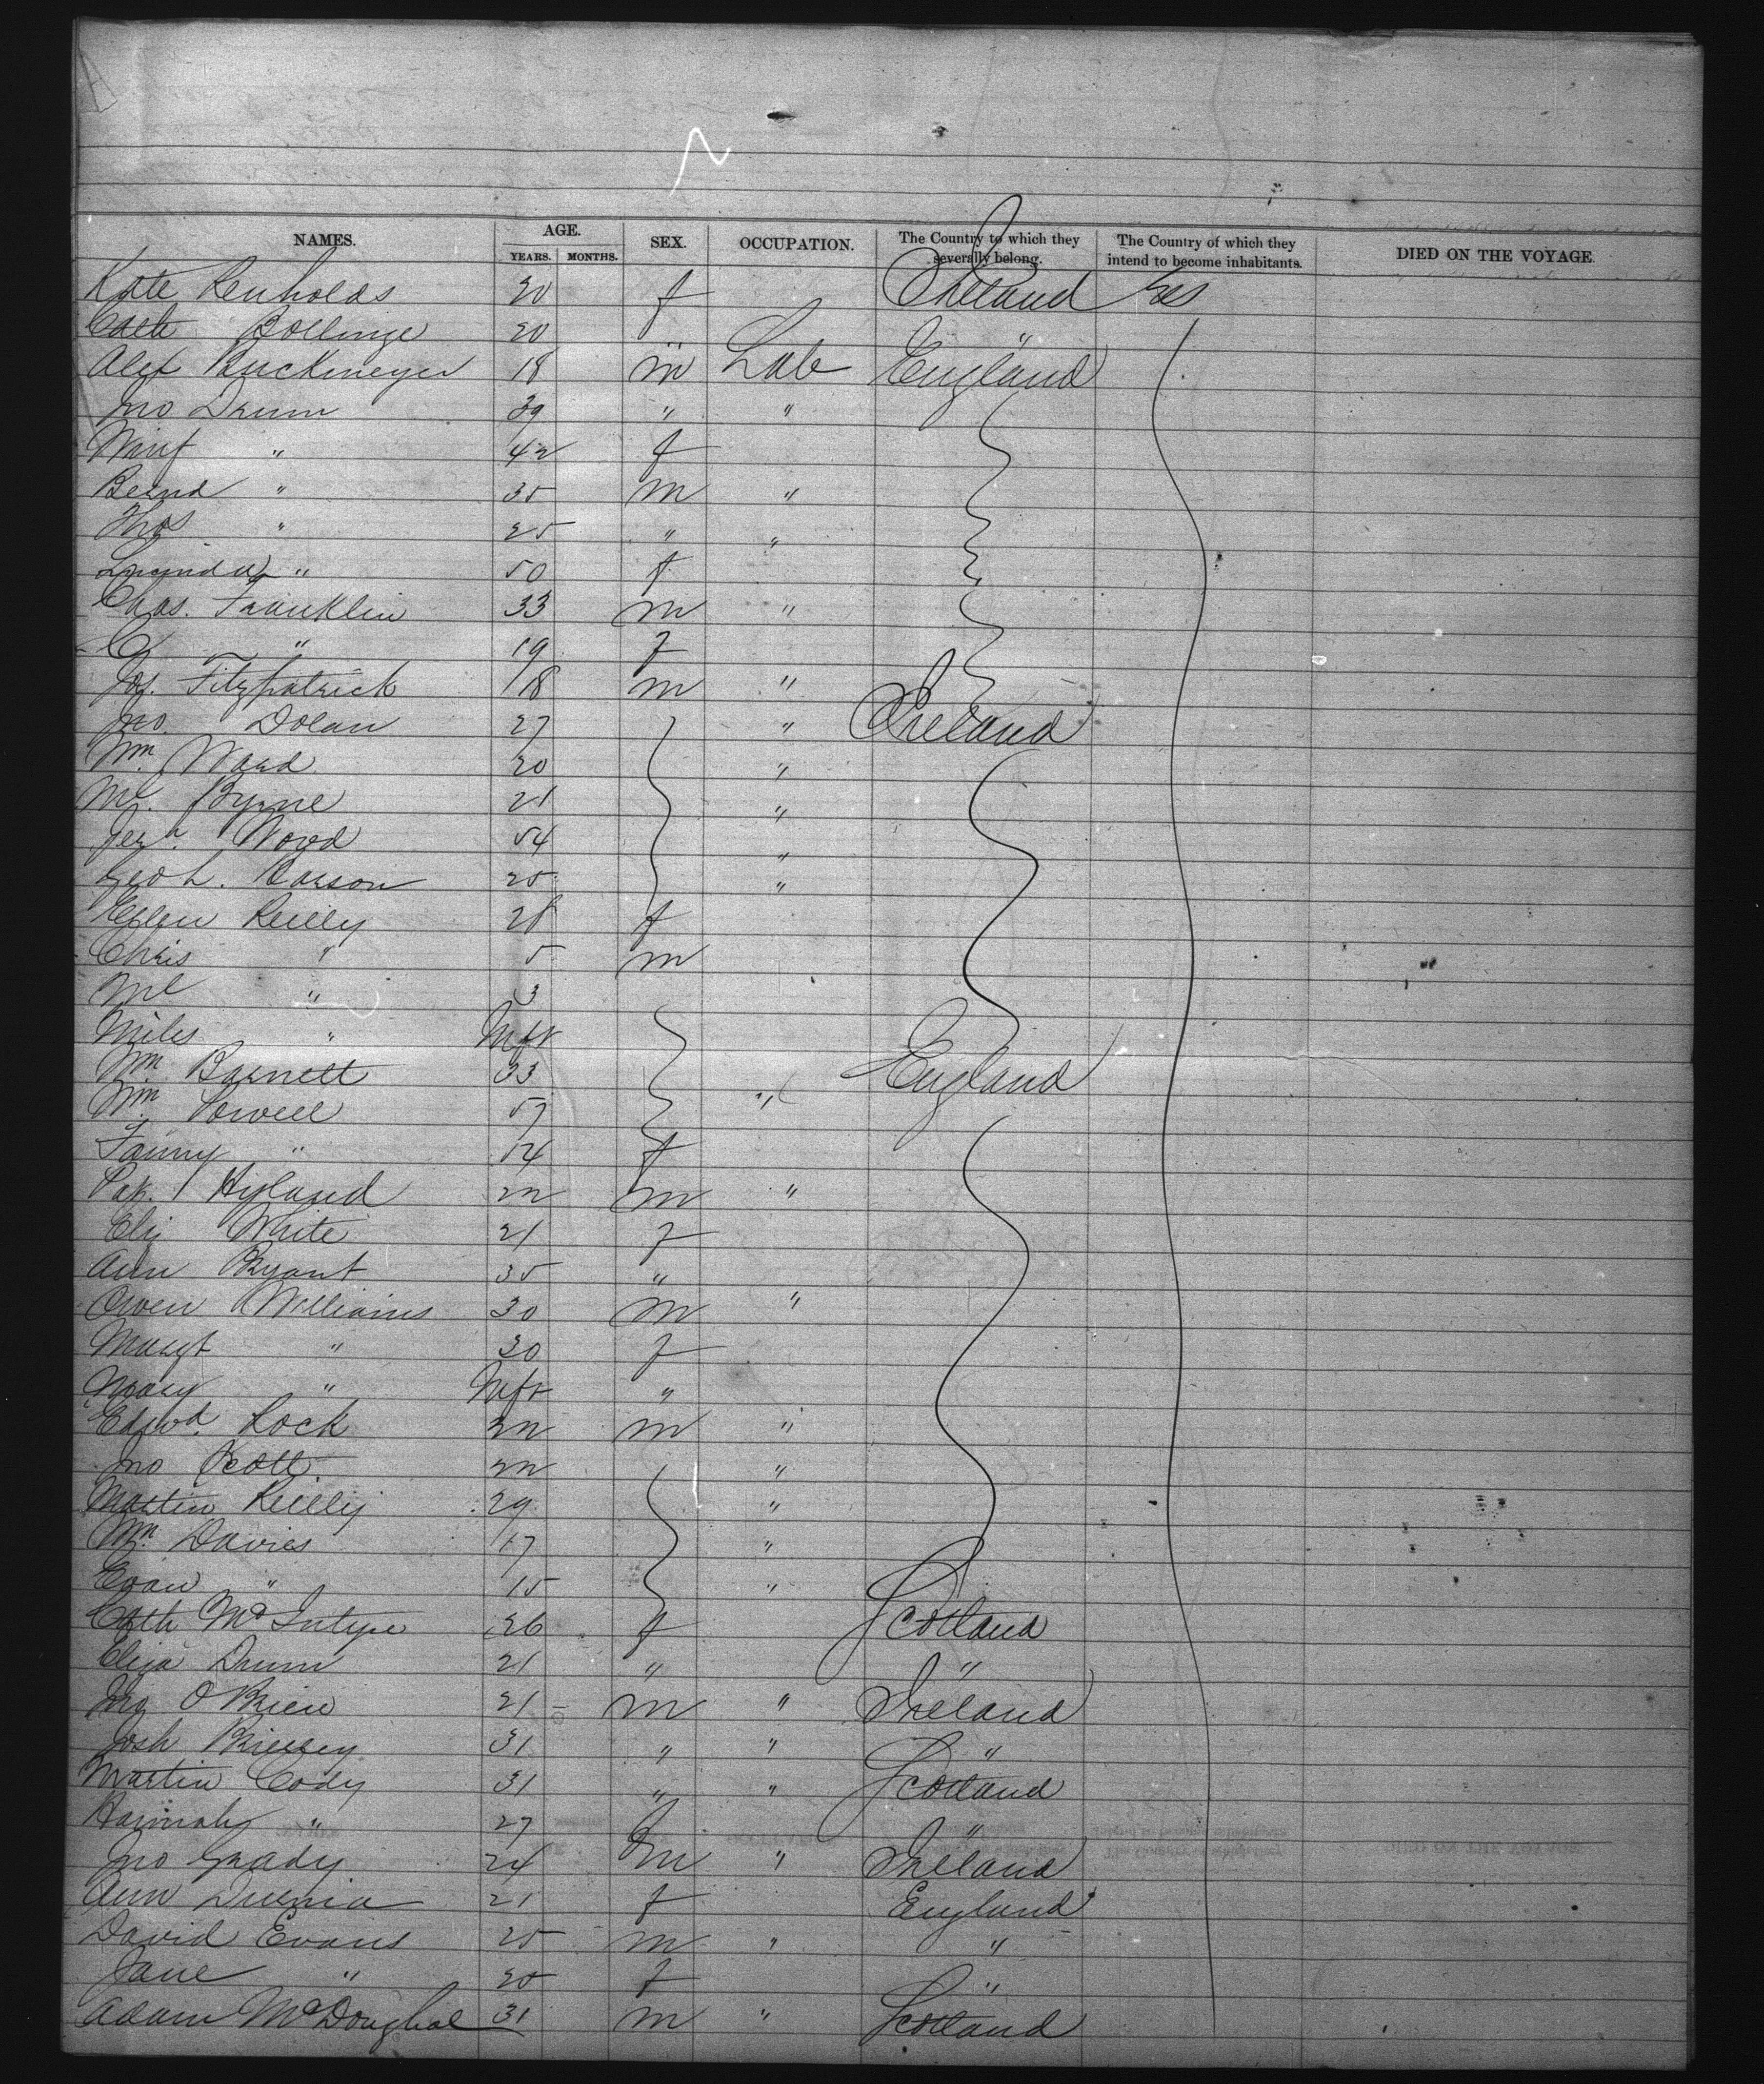 NAMES. AGE. SEX. OCCUPATION. The Country to which they severally belong. The Country of which they intend to become inhabitants. DIED ON THE VOYAGE
YEARS. MONTHS.
Kate Renholds 20 f Ireland
Cath Bollinge 20 " "
Alex Ruckmeyer 18 m Lab England
Jno Drum 39 " "
Winf " 42 f
Bernd " 35 m "
Thos " 25 " "
Lucinda " 50 f
Chas. Franklin 33 m "
C " 19 f
Jos. Fitzpatrick 18 m "
Jno. Dolan 27 " Ireland
Wm. Ward 20 "
Ml. Byrne 21 "
Jerh. Wood 54 "
Geo L. Carson 25 "
Ellen Reilly 28 f
Chris " 5 m
Ml " 3
Miles " Inft
Wm Barnett 33 England
Wm. Powell 57 "
Fanny " 14 f
Pat. Hyland 22 m "
Eliz White 21 f
Ann Bryant 35 "
Owen Williams 30 m "
Margt " 30 f
Mary " Inft "
Edwd. Lock 22 m "
Jno Scott 22 "
Martin Reilly 29 "
Wm. Davies 17 "
Evan " 15 "
Cath McIntyre 26 f Scotland
Eliza Drum 21 " "
Jno O'Brien 21 m " Ireland
Josh 31 " " "
Martin Cody 31 " " Scotland
Hannah " 27 f "
Jno Grady 24 m " Ireland
Ann 21 f England
David Evans 25 m " "
Jane " 20 f "
Adam McDoughal 31 m " Scotland